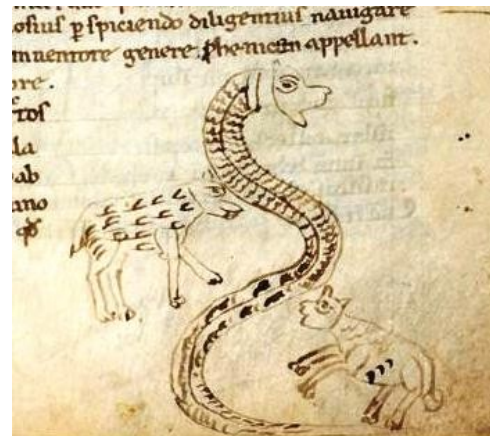 osius perspiciendo diligentius nauigare
muentore genere phenicen appellant.
ore.
tos
la
ab
ano